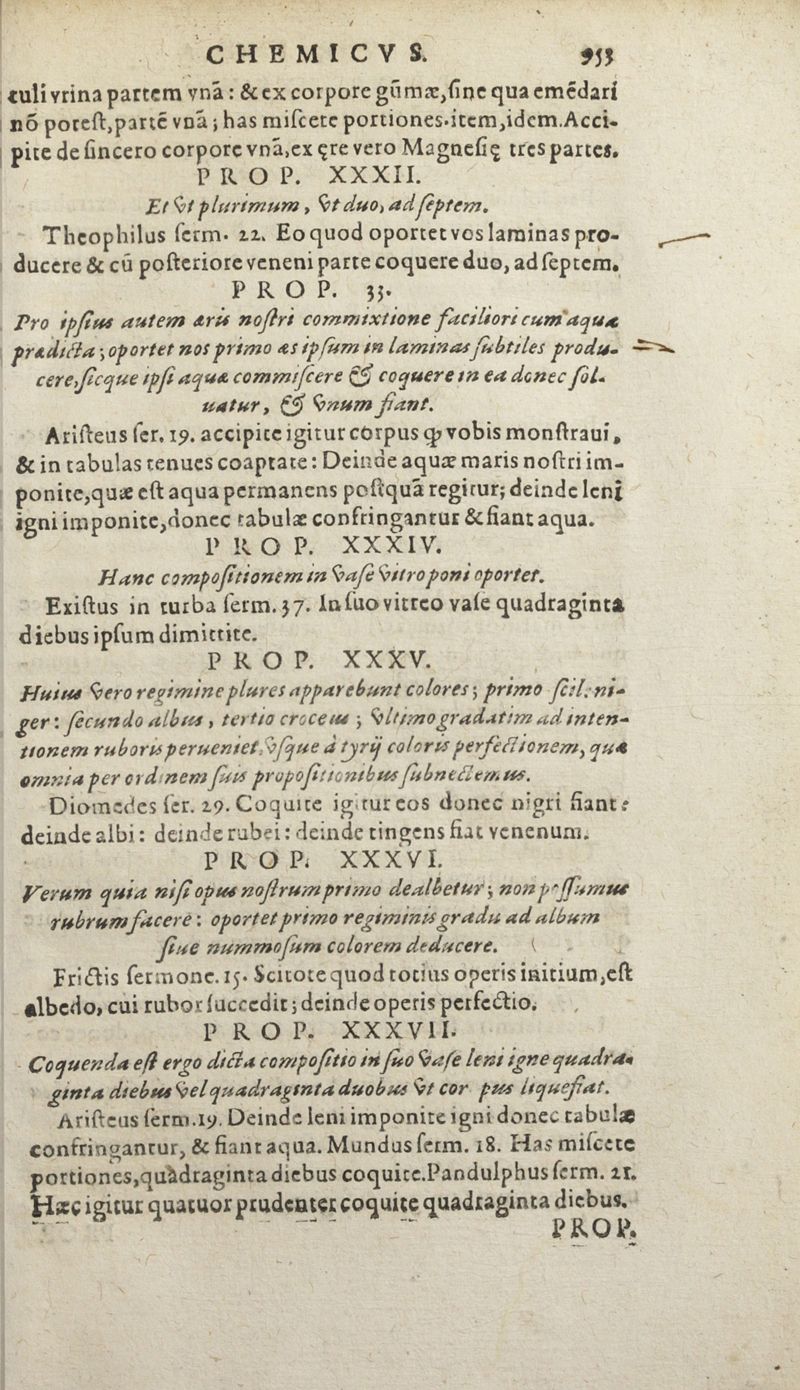 CHEMICVS. 953
tuli vrina partem vnã: & ex corpore gũmæ, ſine qua emẽdari
nõ poteſt, partẽ vnã; has miſcete portiones. item, idem. Acci-
pite de ſincero corpore vnã, ex ęre vero Magneſię tres partes.
PROP. XXXII.
Et vt plurimum, vt duo, ad ſeptem.
Theophilus ſerm. 22. Eo quod oportet vos laminas pro-
ducere & cũ poſteriore veneni parte coquere duo, ad ſeptem.
PROP. 33.
Pro ipſius autem æris noſtri commixtione faciliori cum aqua
prædicta; oportet nos primo æs ipſum in laminas ſubtiles produ-
cere, ſicque ipſi aquæ commiſcere & coquere in ea donec ſol-
uatur, & vnum fiant.
Ariſteus ſer. 19. accipite igitur corpus ꝙ vobis monſtraui,
& in tabulas tenues coaptate: Deinde aquæ maris noſtri im-
ponite, quæ eſt aqua permanens poſtquã regitur; deinde leni
igni imponite, donec tabulæ confringantur & fiant aqua.
PROP. XXXIV.
Hanc compoſitionem in vaſe vitro poni oportet.
Exiſtus in turba ſerm. 37. In ſuo vitreo vaſe quadraginta
diebus ipſum dimittite.
PROP. XXXV.
Huius vero regimine plures apparebunt colores; primo ſcil. ni-
ger: ſecundo albus, tertio croceus; vltimo gradatim ad inten-
tionem ruboris perueniet, vſque à tyrij coloris perfectionem, quæ
omnia per ordinem ſuis propoſitionibus ſubnectemus.
Diomedes ſer. 29. Coquite igitur eos donec nigri fiant:
deinde albi: deinde rubei: deinde tingens fiat venenum.
PROP. XXXVI.
Verum quia niſi opus noſtrum primo dealbetur; non poſſumus
rubrum facere: oportet primo regiminis gradu ad album
ſiue nummoſum colorem deducere.
Frictis ſermone. 15. Scitote quod totius operis initium, eſt
albedo, cui rubor ſuccedit; deinde operis perfectio.
PROP. XXXVII.
Coquenda eſt ergo dicta compoſitio in ſuo vaſe leni igne quadra-
ginta diebus vel quadraginta duobus vt cor pus liquefiat.
Ariſteus ſerm. 19. Deinde leni imponite igni donec tabulæ
confringantur, & fiant aqua. Mundus ſerm. 18. Has miſcete
portiones, quàdraginta diebus coquite. Pandulphus ſerm. 21.
Hæc igitur quatuor prudenter coquite quadraginta diebus.
PROP.